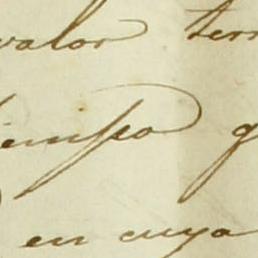 valor terr
tiempo q
en cuya